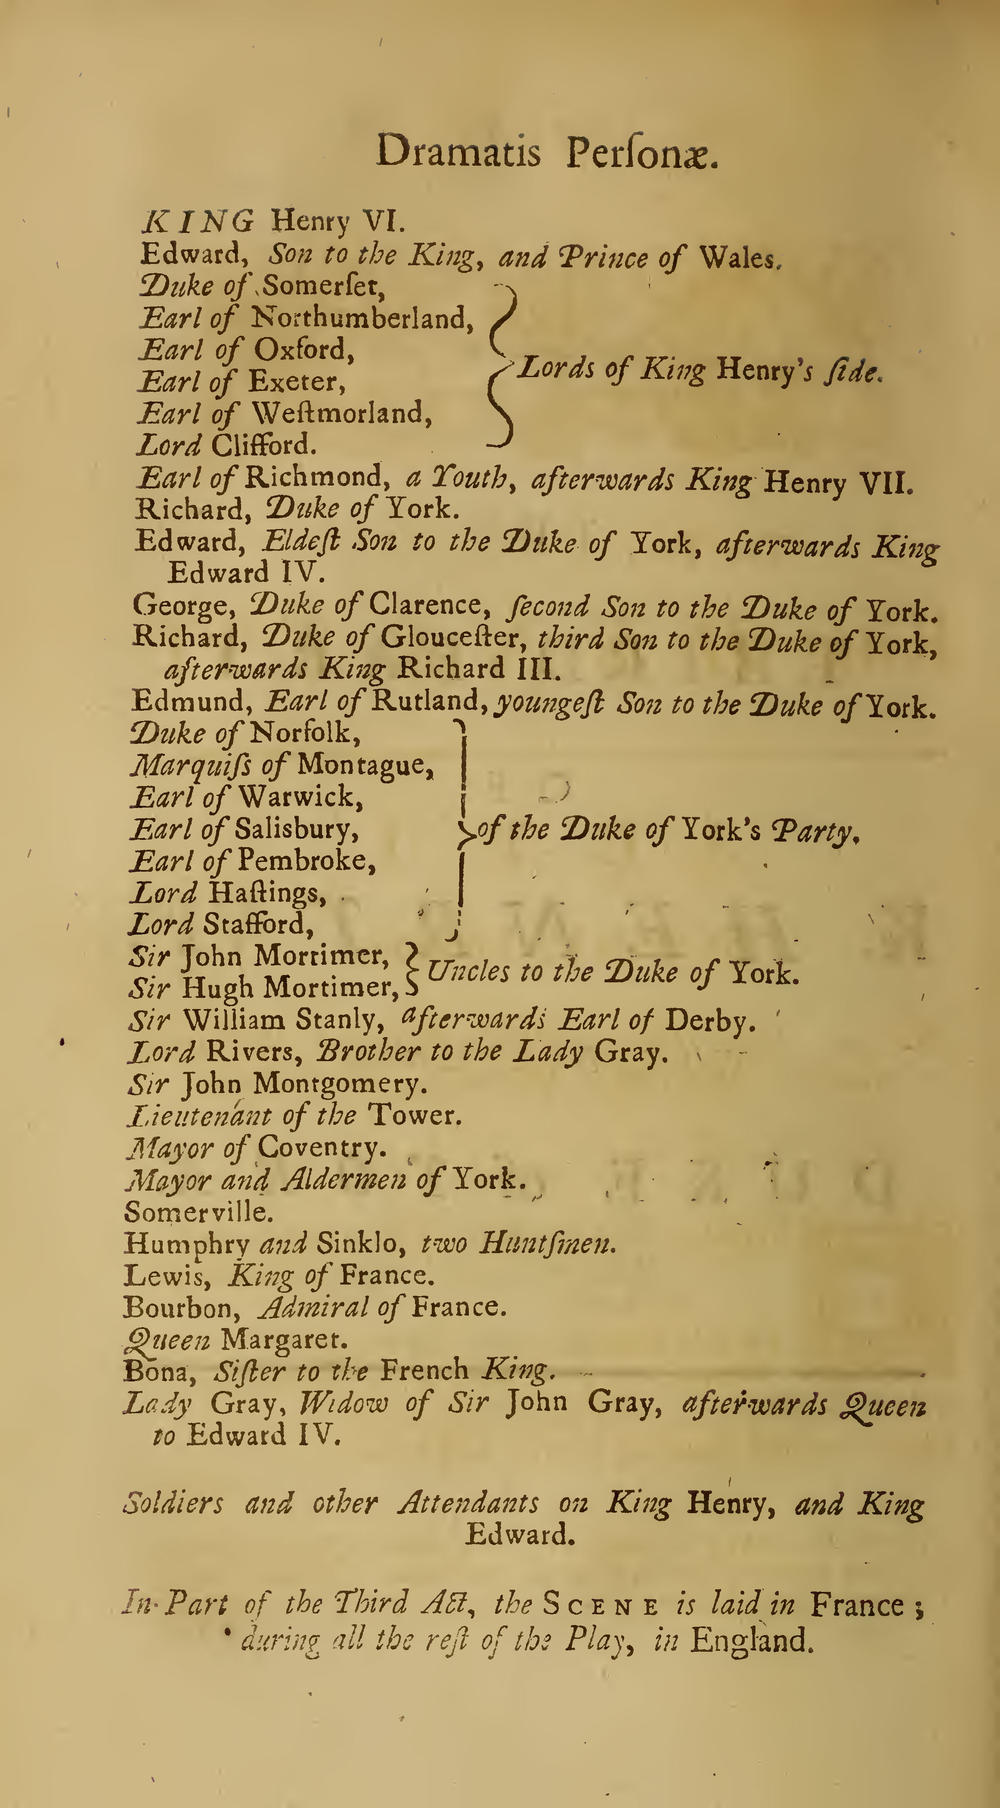 Dramatis Perſonæ.
KING Henry VI.
Edward, Son to the King, and Prince of Wales.
Duke of Somerſet,
Earl of Northumberland,
Earl of Oxford,
Lords of King Henry's ſide.
Earl of Exeter,
Earl of Weſtmorland,
Lord Clifford.
Earl of Richmond, a Youth, afterwards King Henry VII.
Richard, Duke of York.
Edward, Eldeſt Son to the Duke of York, afterwards King
Edward IV.
George, Duke of Clarence, ſecond Son to the Duke of York.
Richard, Duke of Glouceſter, third Son to the Duke of York,
afterwards King Richard III.
Edmund, Earl of Rutland, youngeſt Son to the Duke of York.
Duke of Norfolk,
Marquiſs of Montague,
Earl of Warwick,
Earl of Salisbury,
of the Duke of York's Party.
Earl of Pembroke,
Lord Haſtings,
Lord Stafford,
Sir John Mortimer,
Sir Hugh Mortimer,
Uncles to the Duke of York.
Sir William Stanly, afterwards Earl of Derby.
Lord Rivers, Brother to the Lady Gray.
Sir John Montgomery.
Lieutenant of the Tower.
Mayor of Coventry.
Mayor and Aldermen of York.
Somerville.
Humphry and Sinklo, two Huntſmen.
Lewis, King of France.
Bourbon, Admiral of France.
Queen Margaret.
Bona, Siſter to the French King.
Lady Gray, Widow of Sir John Gray, afterwards Queen
to Edward IV.
Soldiers and other Attendants on King Henry, and King
Edward.
In Part of the Third Act, the SCENE is laid in France;
during all the reſt of the Play, in England.